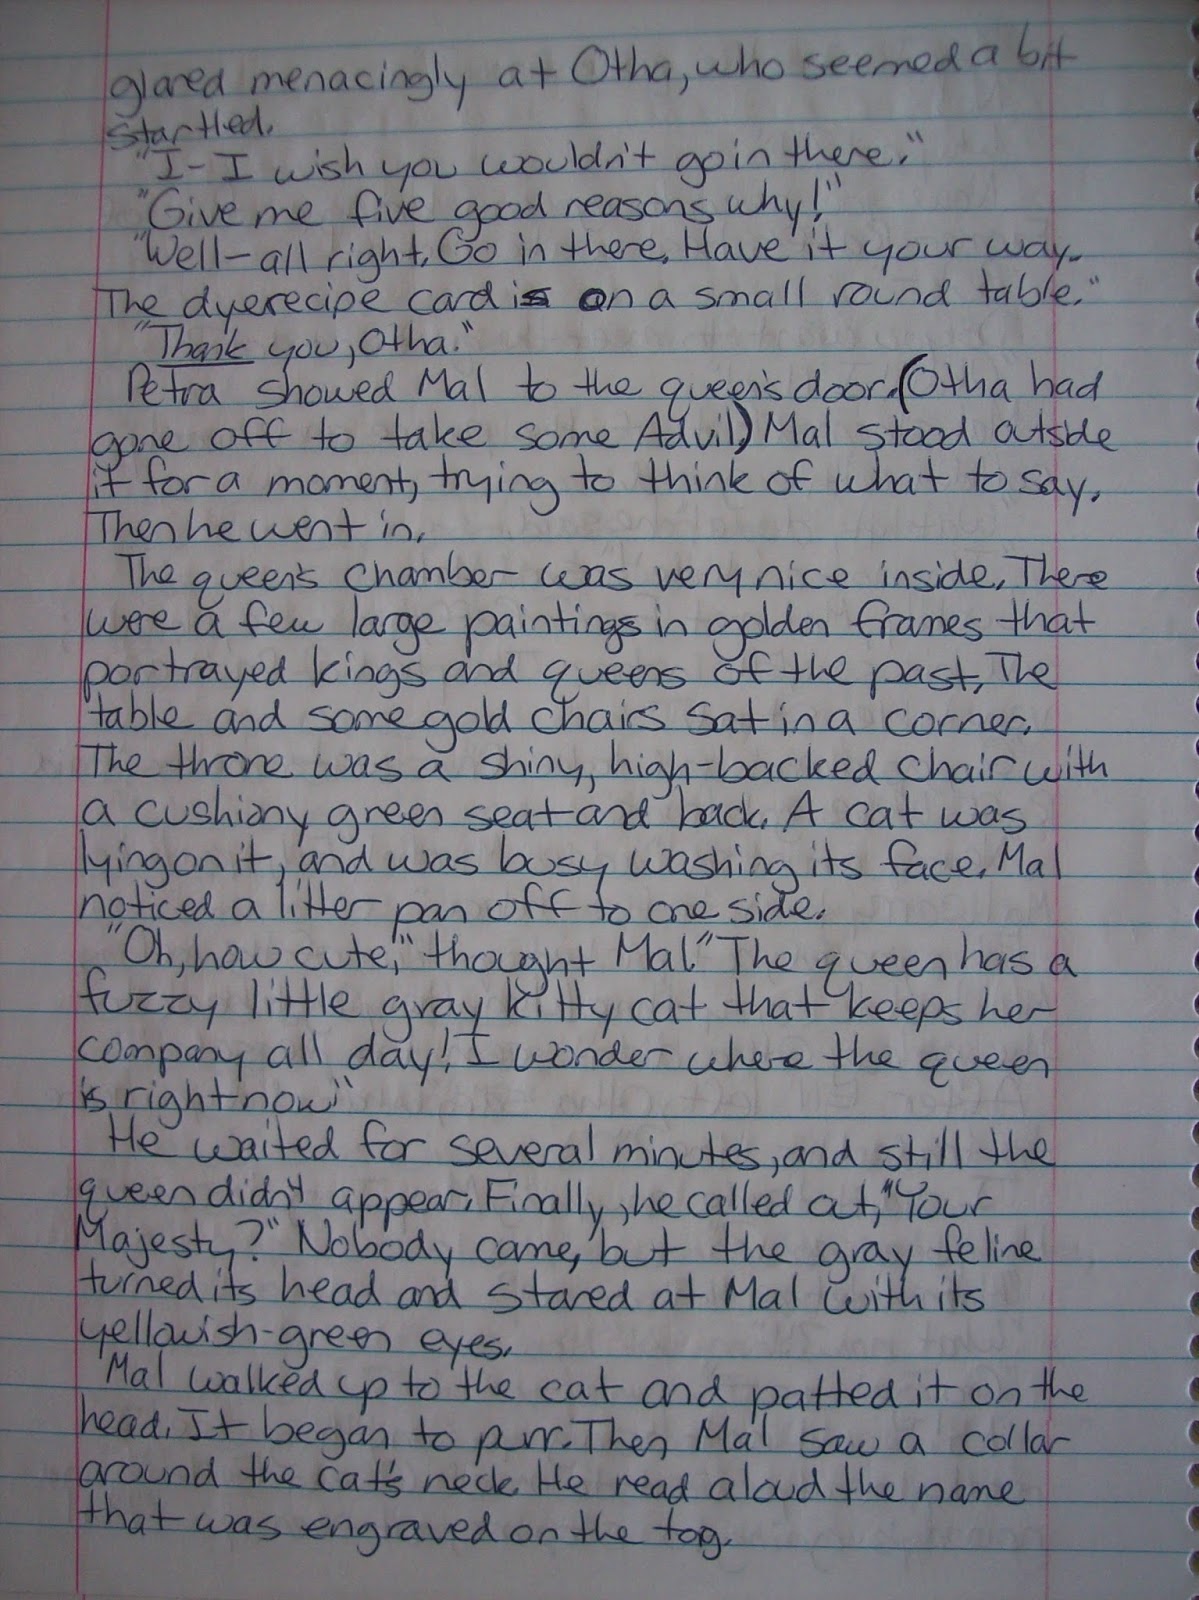 glared menacingly at Otha, who seemed a bit
startled.
"I-I wish you wouldn't go in there."
"Give me five good reasons why!"
"Well-all right. Go in there. Have it your way.
The dye recipe card is on a small round table."
"Thank you, Otha."
Petra showed Mal to the queen's door. (Otha had
gone off to take some Advil) Mal stood outside
it for a moment, trying to think of what to say.
Then he went in.
The queen's chamber was very nice inside. There
were a few large paintings in golden frames that
portrayed kings and queens of the past. The
table and some gold chairs sat in a corner.
The throne was a shiny, high-backed chair with
a cushiony green seat and back. A cat was
lying on it, and was busy washing its face. Mal
noticed a litter pan off to one side.
"Oh, how cute," thought Mal. "The queen has a
fuzzy little gray kitty cat that keeps her
company all day! I wonder where the queen
is right now."
He waited for several minutes, and still the
queen didn't appear. Finally, he called out, "Your
Majesty?" Nobody came, but the gray feline
turned its head and stared at Mal with its
yellowish-green eyes.
Mal walked up to the cat and patted it on the
head. It began to purr. Then Mal saw a collar
around the cat's neck. He read aloud the name
that was engraved on the tag.